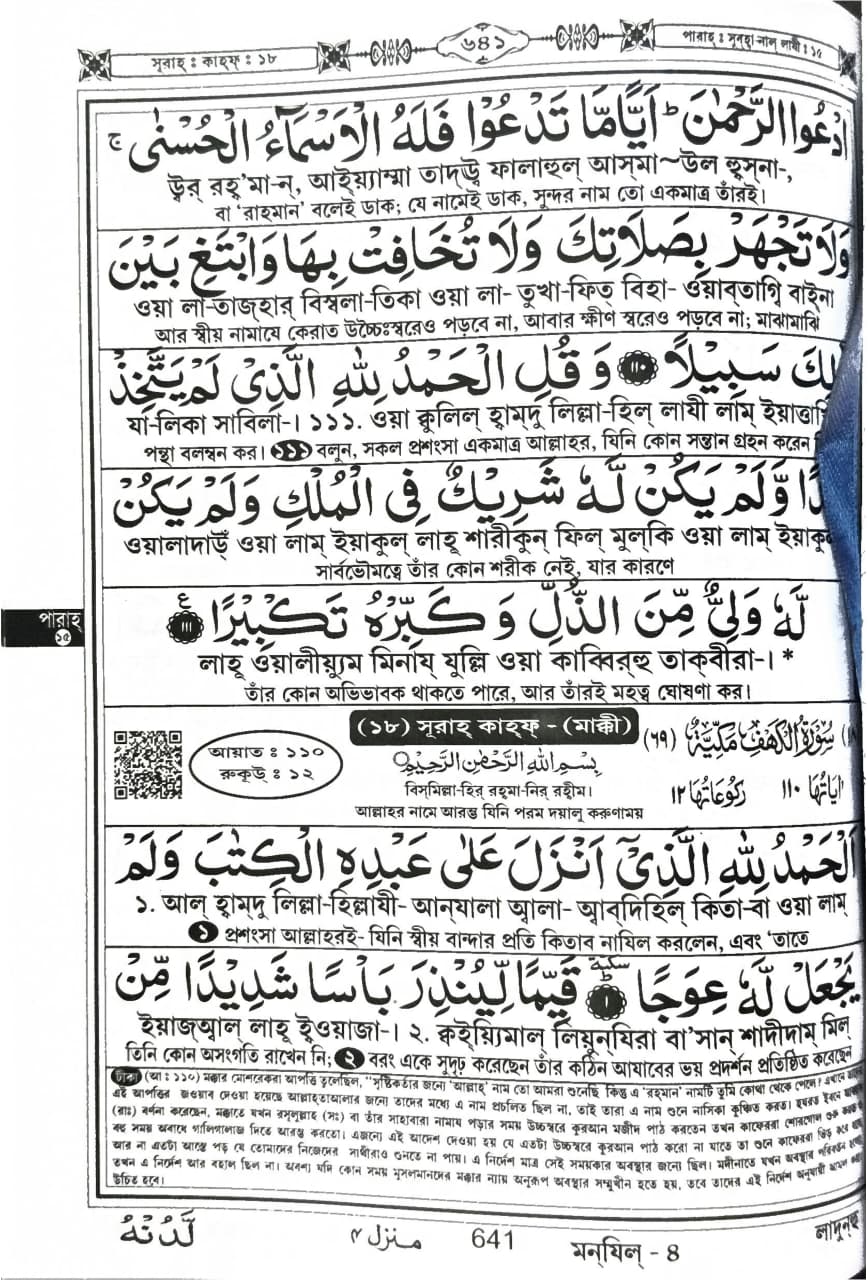 সূরাহ্ : কাহ্ফ : ১৮
৬৪১
পারাহ্ : সুব্হা-নাল্ লাযী : ১৫
ادْعُوا الرَّحْمٰنَ ؕ اَيًّا مَّا تَدْعُوْا فَلَهُ الْاَسْمَآءُ الْحُسْنٰى ج
উর্ রহ্'মা-ন্, আইয়্যাম্মা তাদ্'ঊ ফালাহুল্ আস্মা~উল হুস্না-,
বা 'রাহমান' বলেই ডাক; যে নামেই ডাক, সুন্দর নাম তো একমাত্র তাঁরই।
وَلَا تَجْهَرْ بِصَلَاتِكَ وَلَا تُخَافِتْ بِهَا وَابْتَغِ بَيْنَ
ওয়া লা-তাজ্হার্ বিস্বলা-তিকা ওয়া লা- তুখা-ফিত্ বিহা- ওয়াব্তাগি বাইনা
আর স্বীয় নামাযে কেরাত উচ্চৈঃস্বরেও পড়বে না, আবার ক্ষীণ স্বরেও পড়বে না; মাঝামাঝি
لِكَ سَبِيْلًا ﴿١١٠﴾ وَ قُلِ الْحَمْدُ لِلّٰهِ الَّذِىْ لَمْ يَتَّخِذْ
যা-লিকা সাবিলা-। ১১১. ওয়া ক্বুলিল্ হাম্দু লিল্লা-হিল্ লাযী লাম্ ইয়াত্তা
পন্থা বলম্বন কর। (১১১) বলুন, সকল প্রশংসা একমাত্র আল্লাহর, যিনি কোন সন্তান গ্রহন করেন
دًا وَّلَمْ يَكُنْ لَّهٗ شَرِيْكٌ فِى الْمُلْكِ وَلَمْ يَكُنْ
ওয়ালাদাওঁ ওয়া লাম্ ইয়াকুল্ লাহূ শারীকুন্ ফিল্ মুল্কি ওয়া লাম্ ইয়াকু
সার্বভৌমত্বে তাঁর কোন শরীক নেই, যার কারণে
لَّهٗ وَلِىٌّ مِّنَ الذُّلِّ وَ كَبِّرْهُ تَكْبِيْرًا ﴿١١١﴾ ع
লাহূ ওয়ালীয়্যুম মিনায্ যুল্লি ওয়া কাব্বির্হু তাক্বীরা-। *
তাঁর কোন অভিভাবক থাকতে পারে, আর তাঁরই মহত্ব ঘোষণা কর।
পারাহ্
১৫
(১৮) সূরাহ্ কাহ্ফ্ - (মাক্কী)
(৬৯) سُوْرَةُ الْكَهْفِ مَكِّيَّةٌ
আয়াত : ১১০
রুকূউ : ১২
بِسْمِ اللّٰهِ الرَّحْمٰنِ الرَّحِيْمِ
বিস্মিল্লা-হির্ রহ্মা-নির্ রহীম।
আল্লাহর নামে আরম্ভ যিনি পরম দয়ালু করুণাময়
اٰيَاتُهَا ١١٠ رُكُوْعَاتُهَا ١٢
اَلْحَمْدُ لِلّٰهِ الَّذِىْٓ اَنْزَلَ عَلٰى عَبْدِهِ الْكِتٰبَ وَلَمْ
১. আল্ হাম্দু লিল্লা-হিল্লাযী- আন্যালা আ্বালা- আ্বাব্দিহিল্ কিতা-বা ওয়া লাম্
(১) প্রশংসা আল্লাহরই- যিনি স্বীয় বান্দার প্রতি কিতাব নাযিল করলেন, এবং 'তাতে
يَجْعَلْ لَّهٗ عِوَجًا ﴿١﴾ سكتة قَيِّمًا لِّيُنْذِرَ بَاْسًا شَدِيْدًا مِّنْ
ইয়াজ্আ্বাল্ লাহূ ই্বওয়াজা-। ২. ক্বইয়্যিমাল্ লিয়ুন্যিরা বা'সান্ শাদীদাম্ মিল্
তিনি কোন অসংগতি রাখেন নি; (২) বরং একে সুদৃঢ় করেছেন তাঁর কঠিন আযাবের ভয় প্রদর্শন প্রতিষ্ঠিত করেছেন
টীকা (আ: ১১০) মক্কার মোশরেকরা আপত্তি তুলেছিল, "সৃষ্টিকর্তার জন্যে 'আল্লাহ' নাম তো আমরা শুনেছি কিন্তু এ 'রহমান' নামটি তুমি কোথা থেকে পেলে? এখানে
এই আপত্তির জওয়াব দেওয়া হয়েছে আল্লাহতাআলার জন্যে তাদের মধ্যে এ নাম প্রচলিত ছিল না, তাই তারা এ নাম শুনে নাসিকা কুঞ্চিত করত। হযরত ইবনে
(রাঃ) বর্ণনা করেছেন, মক্কাতে যখন রসূলুল্লাহ (সঃ) বা তাঁর সাহাবারা নামায পড়ার সময় উচ্চস্বরে কুরআন মজীদ পাঠ করতেন তখন কাফেররা শোরগোল
বহু সময় অবাধে গালিগালাজ দিতে আরম্ভ করতো। এজন্যে এই আদেশ দেওয়া হয় যে এতটা উচ্চস্বরে কুরআন পাঠ করো না যাতে তা শুনে কাফেররা ভিড় করে
আর না এতটা আস্তে পড় যে তোমাদের নিজেদের সাথীরাও শুনতে না পায়। এ নির্দেশ মাত্র সেই সময়কার অবস্থার জন্যে ছিল। মদীনাতে যখন অবস্থার পরিবর্তন
তখন এ নির্দেশ আর বহাল ছিল না। অবশ্য যদি কোন সময় মুসলমানদের মক্কার ন্যায় অনুরূপ অবস্থার সম্মুখীন হতে হয়, তবে তাদের এই নির্দেশ অনুযায়ী আমল
উচিত হবে।
لَّدُنْهُ
منزل ٤
641
মন্যিল্ - 4
লাদুন্হু